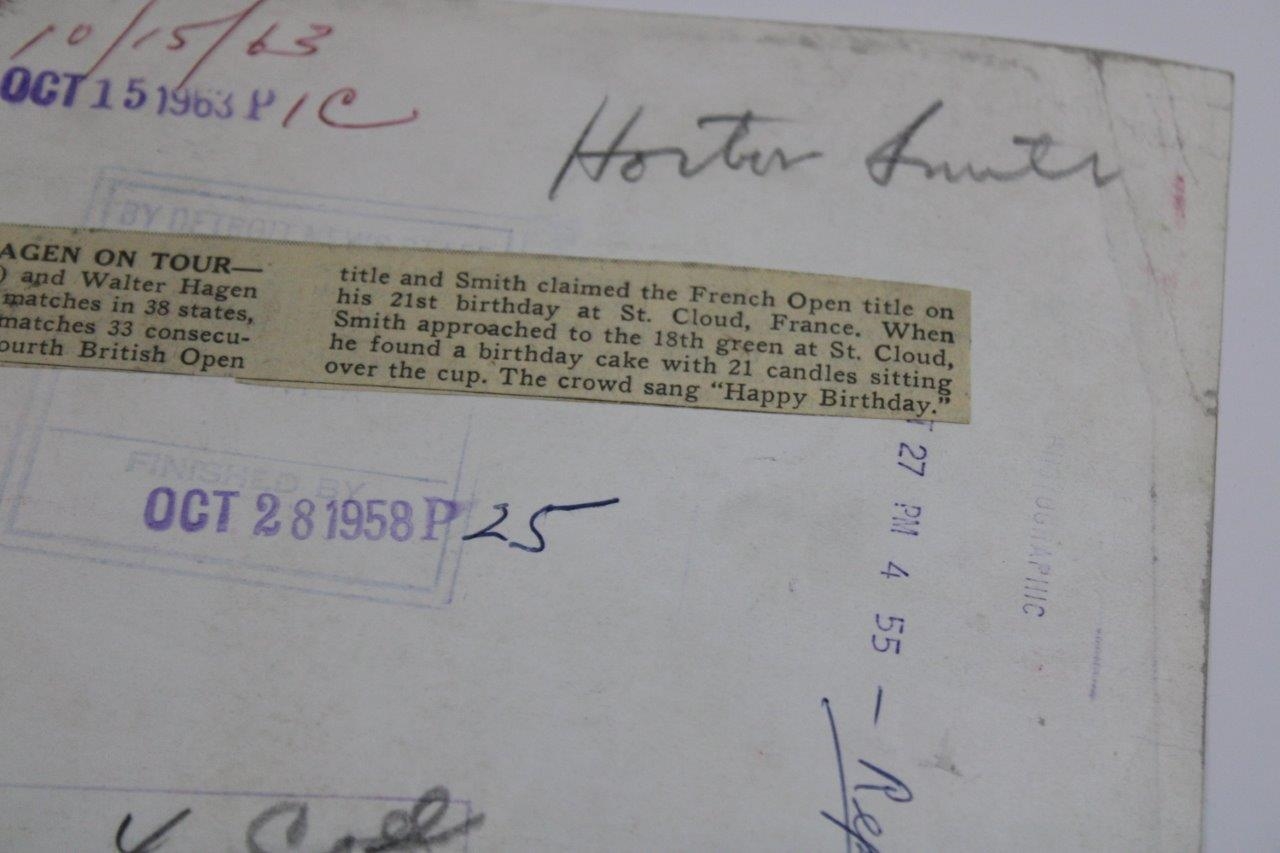 10/15/63
OCT 15 1963 P 1C
Horton Smith
BY DETROIT NEWS
AGEN ON TOUR—
) and Walter Hagen
matches in 38 states,
matches 33 consecu-
ourth British Open
title and Smith claimed the French Open title on
his 21st birthday at St. Cloud, France. When
Smith approached to the 18th green at St. Cloud,
he found a birthday cake with 21 candles sitting
over the cup. The crowd sang “Happy Birthday.”
FINISHED BY
OCT 28 1958 P 25
T 27 PM 4 55 - Rep